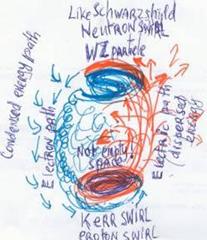 Like Schwarzshield
Neutron Swirl
WZ particle
Condensed energy path
Electron path
Not empty!
space!
Electric path
(dispersed
energy
?
KERR SWIRL
PROTON SWIRL